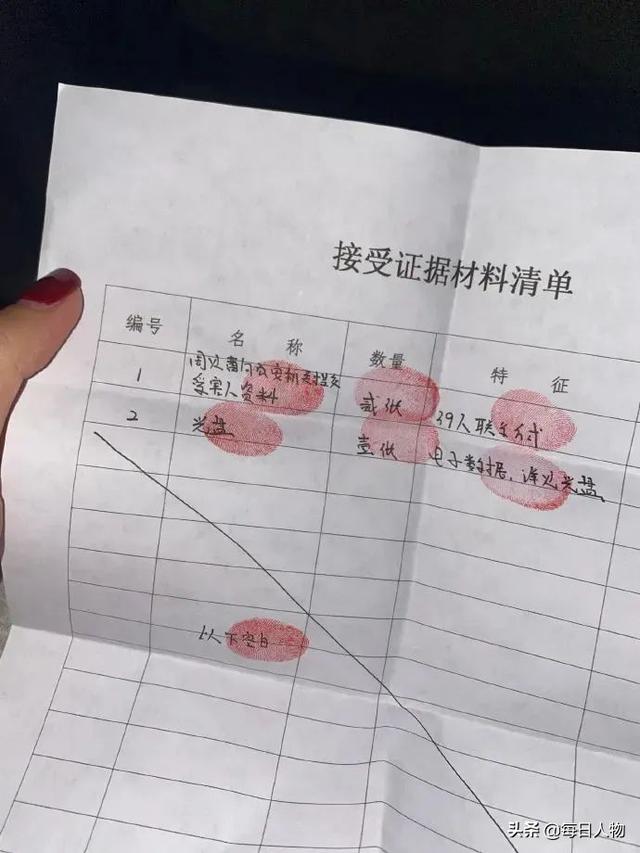 接受证据材料清单
编号 名称 数量 特征
1 资料 贰张 39人联系方式
受害人资料
2 光盘 壹张 电子数据,详见光盘
以下空白
头条 @每日人物